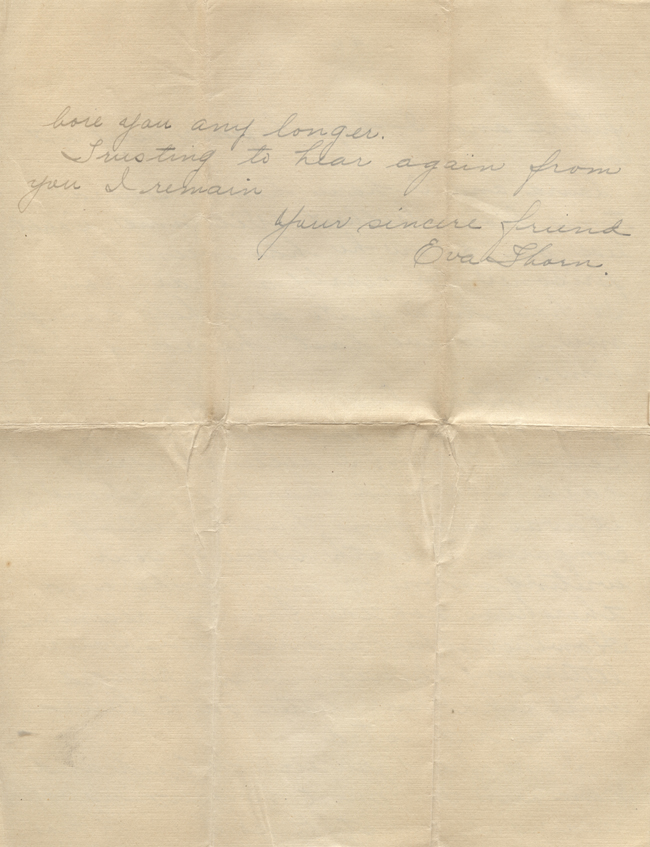 bore you any longer.
Trusting to hear again from
you I remain
Your sincere friend
Eva Thorn.